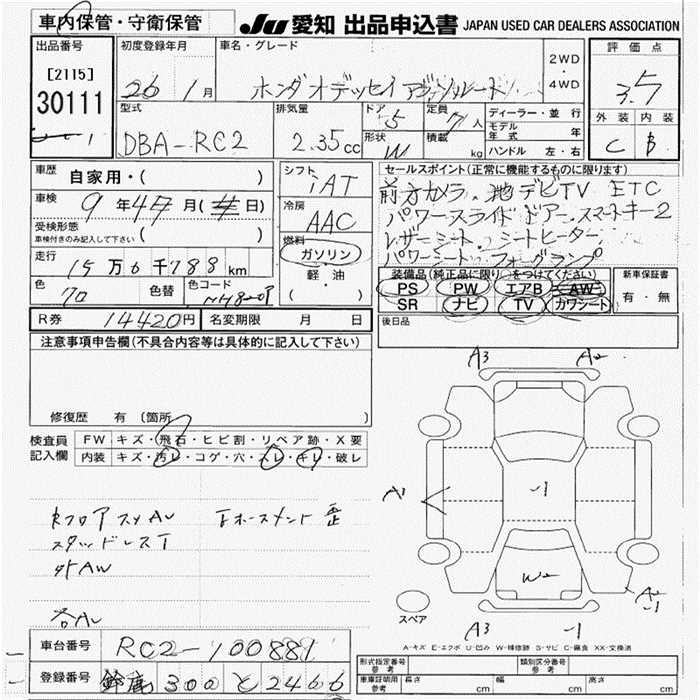 車内保管・守衛保管
JU 愛知 出品申込書 JAPAN USED CAR DEALERS ASSOCIATION
出品番号
[2115]
30111
初度登録年月
26 1月
車名・グレード
ホンダオデッセイ アブソルート
2WD
・
4WD
評価点
3.5
外装 内装
C B
型式
DBA-RC2
排気量
2.35cc
ドア 5
形状 W
定員 7人
積載 kg
ディーラー・並行
モデル年式 年
ハンドル 左・右
車歴 自家用・( )
車検 9年 4月( 日)
受検形態
車検付きのみ記入して下さい ( )
走行
15万6千788km
色 色替 色コード
クロ NH820P
シフト
iAT
冷房
AAC
燃料
ガソリン
・
軽・油
( )
セールスポイント(正常に機能するものに限ります)
前方カメラ・地デジTV ETC
パワースライドドアー スマートキー2
レザーシート・シートヒーター
パワーシート・フォーグランプ
装備品(純正品に限り○をつけてください)
PS PW エアB AW
SR ナビ TV カワシート
新車保証書
有・無
R券 14420円 名変期限 月 日
後日品
注意事項申告欄(不具合内容等は具体的に記入して下さい)
修復歴 有 〔箇所 〕
検査員記入欄
FW キズ・飛石・ヒビ割・リペア跡・X要
内装 キズ・汚レ・コゲ・穴・スレ・キレ・破レ
スタッドレスT
外AW
A3 A2
A1
-1
W2
A2
-1
A3
スペア
A-キズ E-エクボ U-凹み W-補修跡 S-サビ C-腐食 XX-交換済
車台番号 RC2-100881
登録番号 鈴鹿 300 と 2466
形式指定番号 参考
類別区分番号 参考
車庫証明用 参考 長さ cm 幅 cm 高さ cm